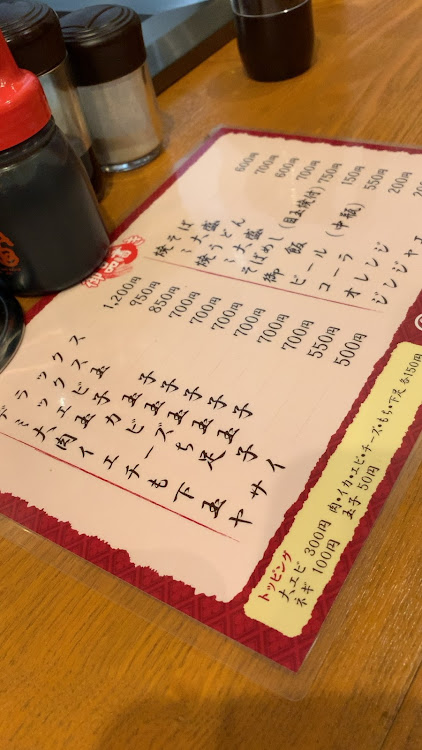 御品書き
焼そば 600円
〃大盛 700円
焼うどん 600円
〃大盛 700円
そばめし(目玉焼付) 750円
御飯 150円
ビール(中瓶) 550円
コーラ 200円
オレンジ 20
ジンジャエ
デラックス 1,200円
ミックス 950円
大エビ玉 850円
肉玉子 700円
イカ玉子 700円
エビ玉子 700円
チーズ玉子 700円
もち玉子 700円
下足玉子 700円
玉子 550円
ヤサイ 500円
トッピング
大エビ 300円 肉・イカ・エビ・チーズ・もち・下足 各150円
ネギ 100円 玉子 50円